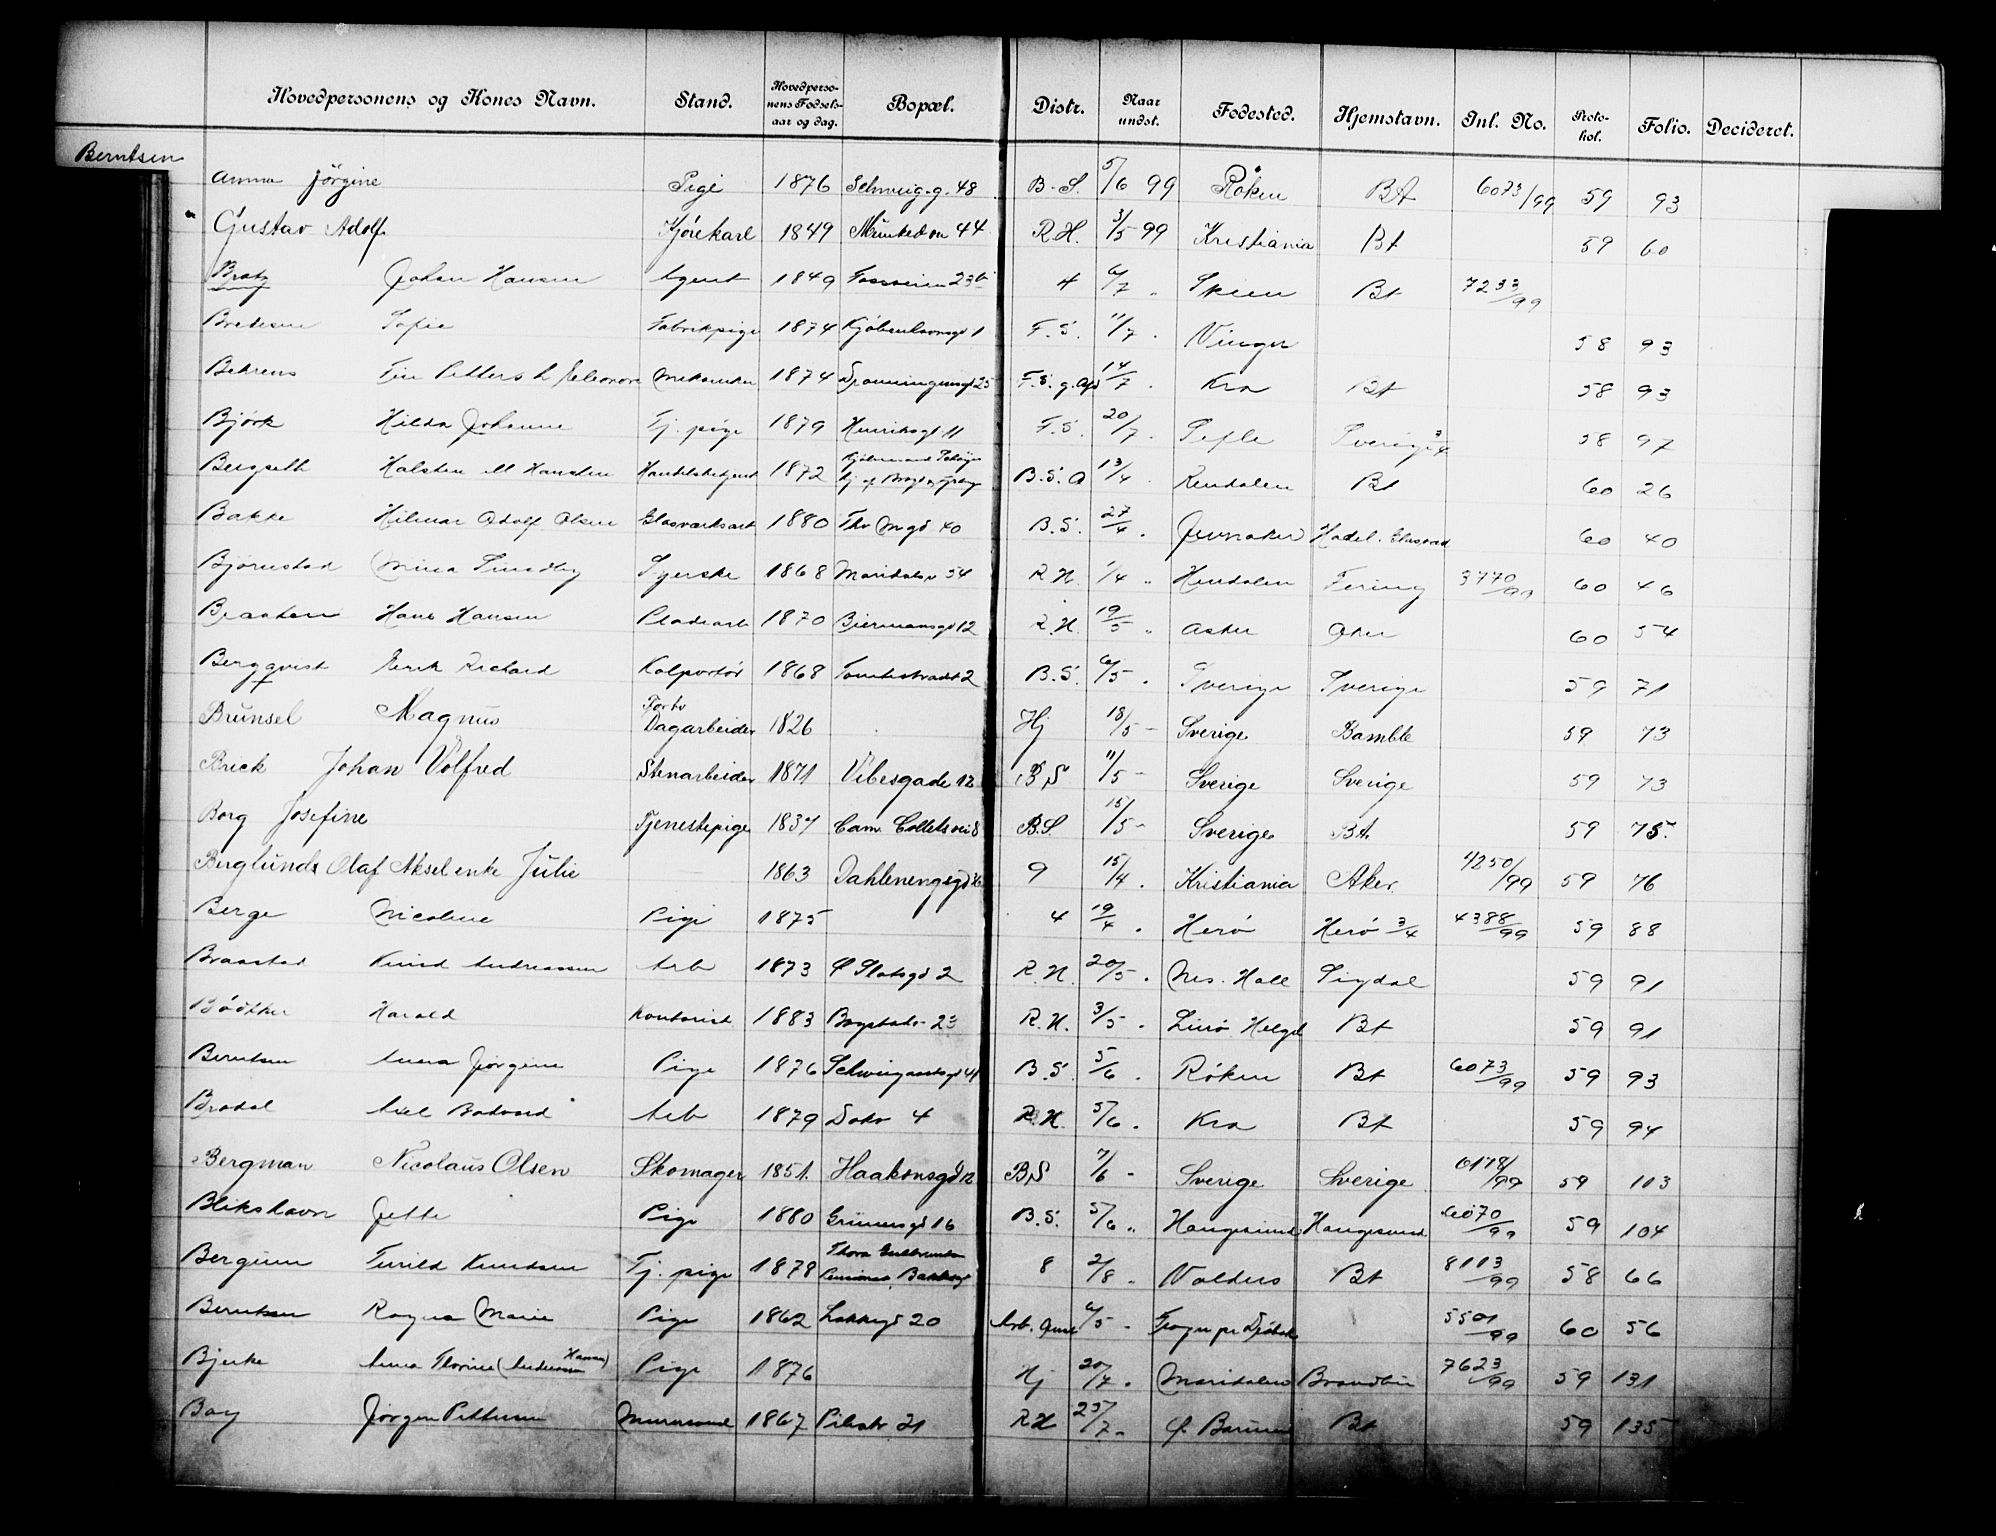 Hovedpersonens og Kones Navn. Stand. Hovedpersonens Fødselsaar og dag. Bopæl. Distr. Naar undst. Fødested. Hjemstavn. Inl. No. Protokol. Folio. Decideret.
Berntsen
Anna Jörgine Pige 1876 Schweig.g. 48 B.S. 5/6 99 Röken Bt 6073/99 59 93
Gustav Adolf Kjörekarl 1849 44 R.H. 3/5 99 Kristiania Bt 59 60
Johan Hansen Agent 1849 Fossveien 23b 4 6/7 Skien Bt 7233/99
Bredesen Sofie Fabrikpige 1874 Kjöbenhavnsgd 1 F.S. 11/7 Vinger 58 93
Behrens Petters Eleonore Mekaniker 1874 Dronningensgd 25 F.S. 14/7 Kra Bt 58 93
Björk Hilda Johanne Tj. pige 1879 Henriksgt 11 F.S. 20/7 Gefle Sverige 3/4 58 97
Bergseth Halsten M Hansen Handelsbetjent 1872 B.S. A 13/4 Rendalen Bt 60 26
Bakke Hilmar Adolf Olsen Glasværksarb 1880 Thv Mgd 40 B.S. 27/4 Jevnaker Hadel. Glasværk 60 40
Björnstad Mina Syerske 1868 Maridalsv 54 R.H. 1/4 3770/99 60 46
Braaten Hans Hansen Pladsarb 1870 Biermansgd 12 R.H. 19/5 Asker Aker 60 54
Bergqvist Erik Richard Kolportör 1868 Tomtestræde 2 B.S. 6/5 Sverige Sverige 59 71
Brunsel Magnus Forhv Dagarbeider 1826 Hj 18/5 Sverige Bamble 59 73
Brick Johan Volfred Stenarbeider 1871 Vibesgade 12 B.S 11/5 Sverige Sverige 59 73
Borg Josefine Tjenestepige 1837 Cam. Colletsvei 8 B.S. 15/5 Sverige Bt. 59 75.
Berglunds Olaf Aksel enke Julie 1863 Dahlenengsgd 9 15/4 Kristiania Aker 4250/99 59 76
Berge Nicoline Pige 1875 4 19/4 Herö Herö 3/4 4388/99 59 88
Braastad Knud Andreassen Arb 1873 Ø Slotsgd 2 R.H. 20/5 Nes. Hall Sigdal 59 91
Böðtker Harald Kontorist 1883 Bogstadv 23 R.H. 3/5 Helgel Bt 59 91
Berntsen Anna Jörgine Pige 1876 Schweigaardsgd B.S. 5/6 Röken Bt 6073/99 59 93
Brodal Axel Botvard Arb 1879 4 R.H. 5/6 Kra Bt 59 94
Bergman Nicolaus Olsen Skomager 1851. Haakonsgd 12 BS 7/6 Sverige Sverige 6178/99 59 103
Blikshavn Jette Pige 1880 Grünersgd 16 B.S. 5/6 Haugesund Haugesund 6070/99 59 104
Bergum Turild Knudsen Tj. pige 1878 Thora Gulbransen Pensionat 8 2/8 Valders Bt 8113/99 58 66
Berntsen Ragna Marie Pige 1862 Lakkegd 20 6/5 Frogn pr Dröbak 5501/99 60 56
Bjerke Anna Thorine (Andersen Hansen) Pige 1876 Hj 20/7 Maridalen Brandbu 7623/99 59 131
Bay Jörgen Pettersen Murersvend 1867 Pilestr 21 R.H 25/7 Ø. Bærum Bt 59 135